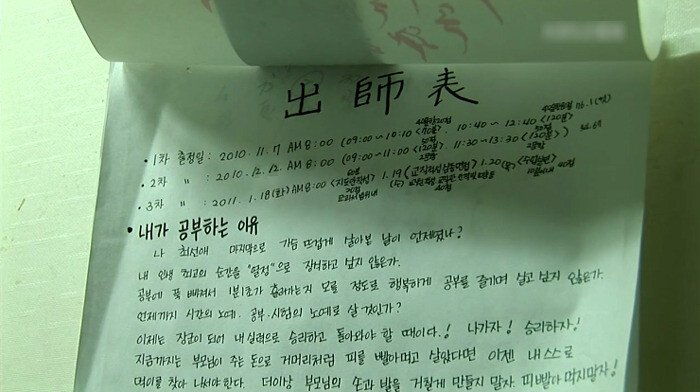 出師表
• 1차 출정일 : 2010. 11. 7 AM 8:00 (09:00 ~ 10:10 <70분> 10:40 ~ 12:40 <120분>
• 2차 〃 : 2010. 12. 12 AM 8:00 (09:00 ~ 11:00 <120분> 11:30 ~ 13:30 <120분>)
• 3차 〃 : 2011. 1. 18 (화) AM 8:00 1.19 (수) 1.20 (목) <수업실연>
• 내가 공부하는 이유
나 최선애 마지막으로 가슴 뜨겁게 살아본 날이 언제였나?
내 인생 최고의 순간을 "열정"으로 장식하고 싶지 않은가.
공부에 푹 빠져서 1분1초가 흘러가는지 모를 정도로 행복하게 공부를 즐기며 살고 싶지 않은가.
언제까지 시간의 노예. 공부.시험의 노예로 살 것인가?
이제는 장군이 되어 내 실력으로 승리하고 돌아와야 할 때이다! 나가자! 승리하자!
지금까지는 부모님이 주는 돈으로 거머리처럼 피를 빨아먹고 살았다면 이젠 내 스스로
먹이를 찾아 나서야 한다. 더이상 부모님의 손과 발을 거칠게 만들지 말자. 피 빨아 먹지말자!